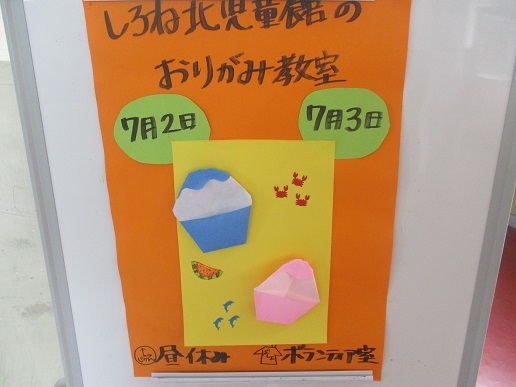 しろね北児童館の
おりがみ教室
7月2日
7月3日
昼休み
ボランティア室